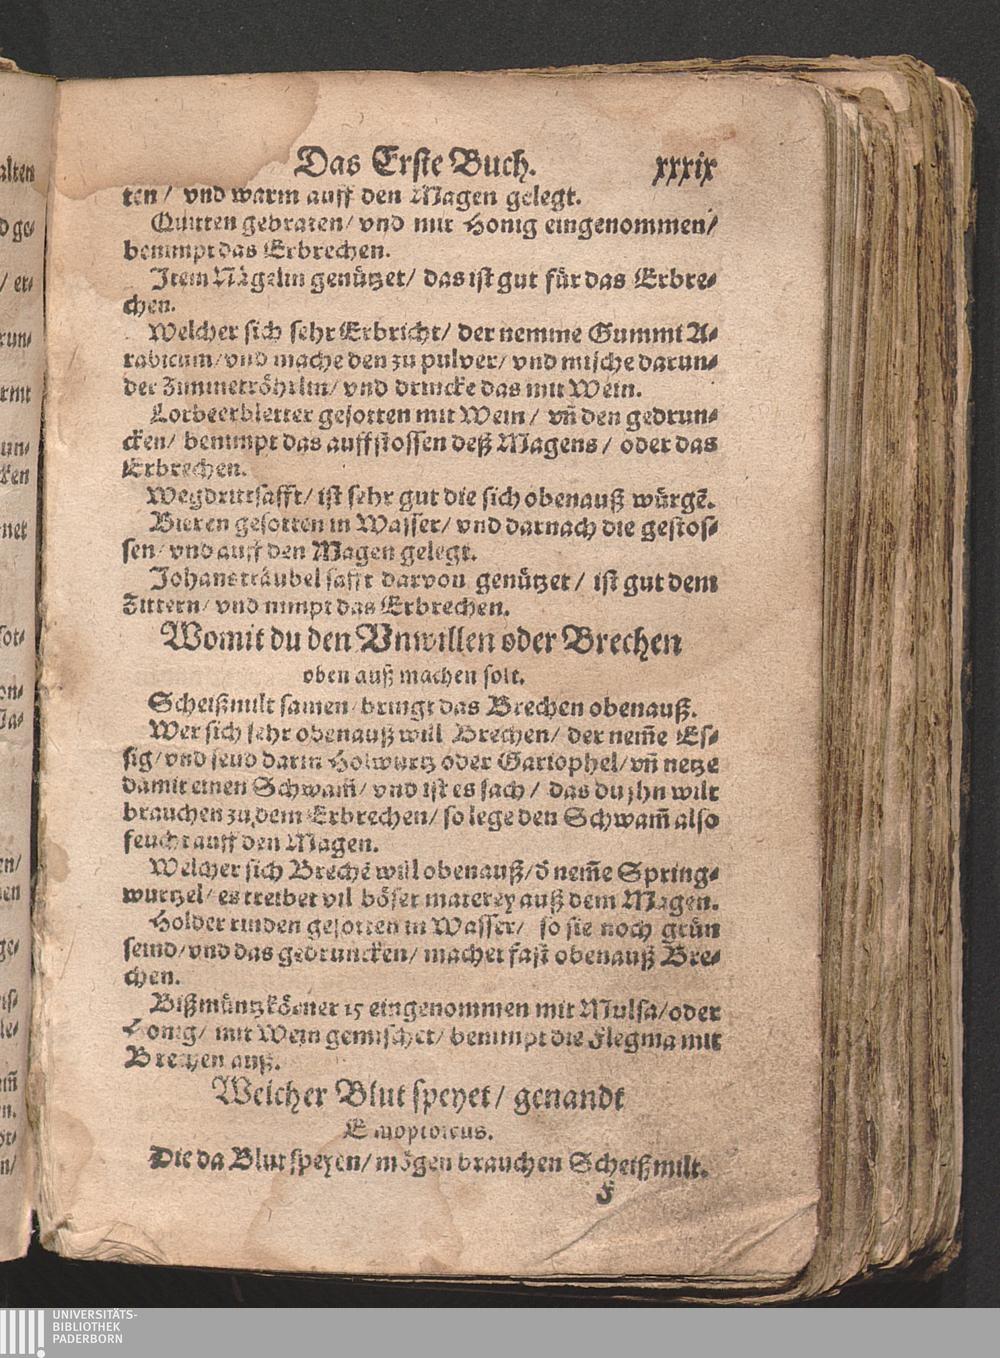 Das Erste Buch. xxxix
ten / vnd warm auff den Magen gelegt.
Quitten gebraten / vnd mit Honig eingenommen /
benimpt das Erbrechen.
Item Nägelin genützet / das ist gut für das Erbre⸗
chen.
Welcher sich sehr Erbricht / der nemme Gummi A⸗
rabicum / vnd mache den zu pulver / vnd mische darun⸗
der Zimmetröhrlin / vnd drincke das mit Wein.
Lorbeerbletter gesotten mit Wein / vñ den gedrun⸗
cken / benimpt das auffstossen deß Magens / oder das
Erbrechen.
Wegdrittsafft / ist sehr gut die sich obenauß würgē.
Bieren gesotten in Wasser / vnd darnach die gestos⸗
sen / vnd auff den Magen gelegt.
Johansträubel safft darvon genützet / ist gut dem
Zittern / vnd nimpt das Erbrechen.
Womit du den Vnwillen oder Brechen
oben auß machen solt.
Scheißmilt samen / bringt das Brechen obenauß.
Wer sich sehr obenauß will Brechen / der nem̄e Es⸗
sig / vnd seud darin Holwurtz oder Gariophel / vñ netze
damit einen Schwam̄ / vnd ist es sach / das du jhn wilt
brauchen zu dem Erbrechen / so lege den Schwam̄ also
feucht auff den Magen.
Welcher sich Brechē will obenauß / d̄ nem̄e Spring⸗
wurtzel / es treibet vil böser materey auß dem Magen.
Holder rinden gesotten in Wasser / so sie noch grün
seind / vnd das gedruncken / machet fast obenauß Bre⸗
chen.
Bißmüntzkörner 15 eingenommen mit Mulsa / oder
Honig / mit Wein gemischet / benimpt die Flegma mit
Brechen auß.
Welcher Blut speyet / genandt
Emoptoicus.
Die da Blut speyen / mögen brauchen Scheißmilt.
F
alten
d ge⸗
/ er⸗
run⸗
rmit
un⸗
ken
net
sot⸗
on⸗
Ja⸗
en /
ge⸗
le⸗
n.
n /
UNIVERSITÄTS-
BIBLIOTHEK
PADERBORN